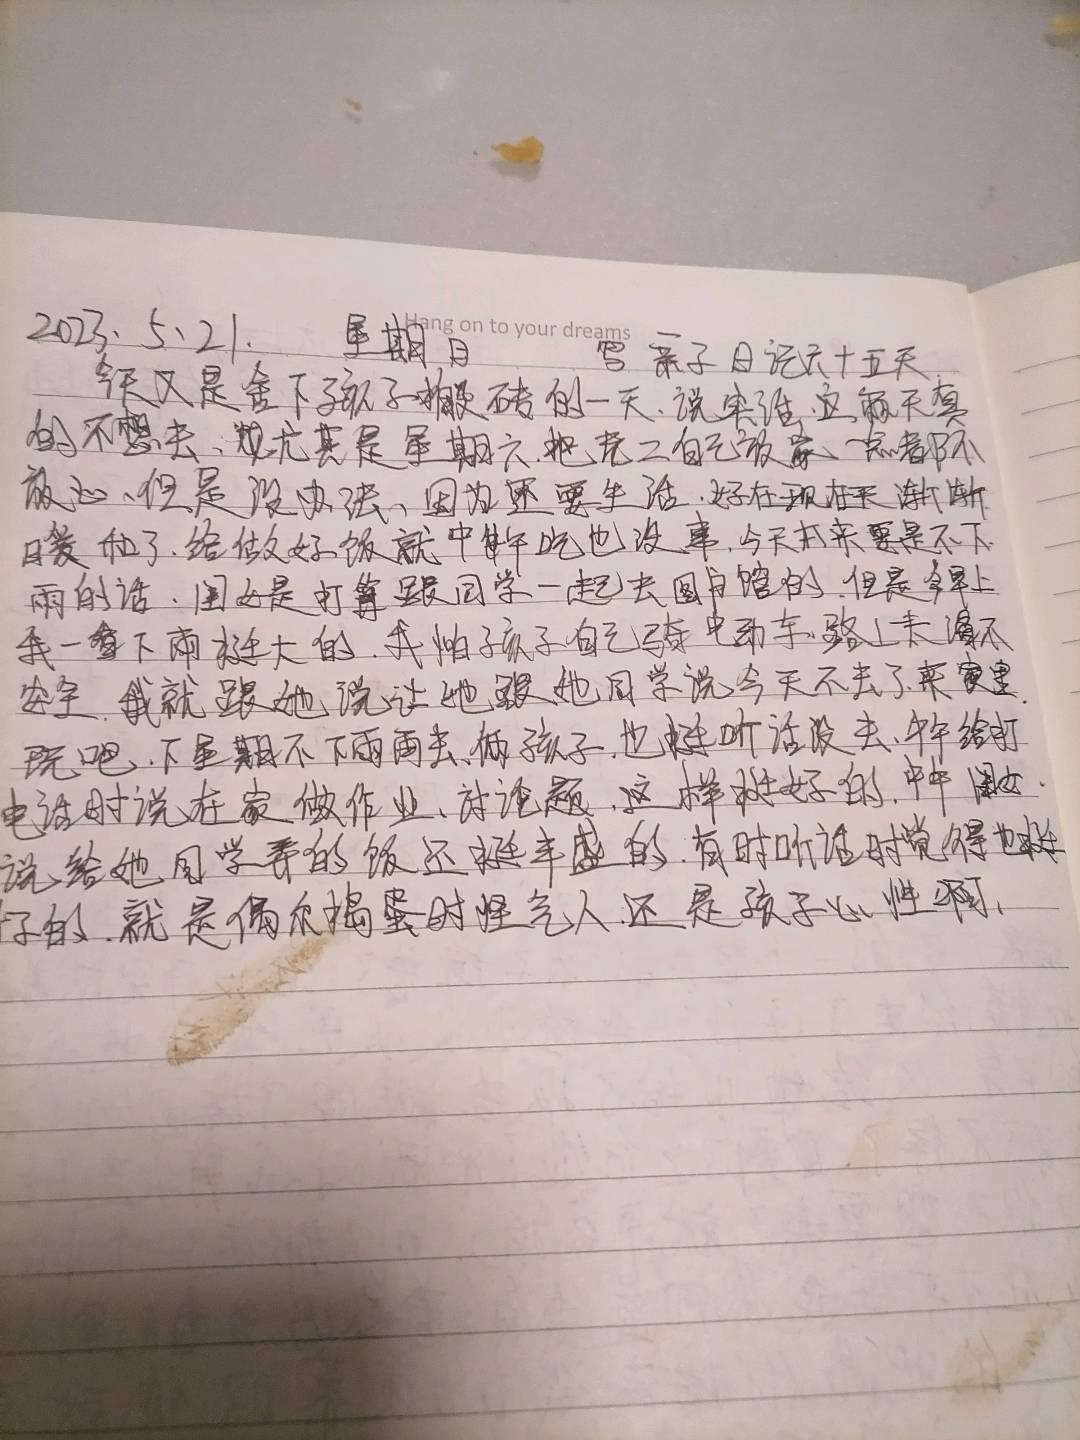 Hang on to your dreams
2023、5、21. 星期日 写亲子日记六十五天.
今天又是舍下孩子搬砖的一天、说实话,这两天真
的不想去、尤其是星期六.把老二自己放家、一点都不
放心、但是没办法、因为还要生活.好在现在天渐渐
暖和了.给做好饭就中午吃也没事.今天本来要是不下
雨的话.闺女是打算跟同学一起去图书馆的.但是今早上
我一看下雨挺大的.我怕孩子自己骑电动车路上太滑不
安全.我就跟她说让她跟她同学说今天不去了来家里
玩吧.下星期不下雨再去、俩孩子.也挺听话没去.中午给打
电话时说在家做作业、讨论题.这样挺好的.中午闺女.
说给她同学弄的饭还挺丰盛的.有时听话时觉得也挺
好的.就是偶尔捣蛋时怪气人.还是孩子心性啊,